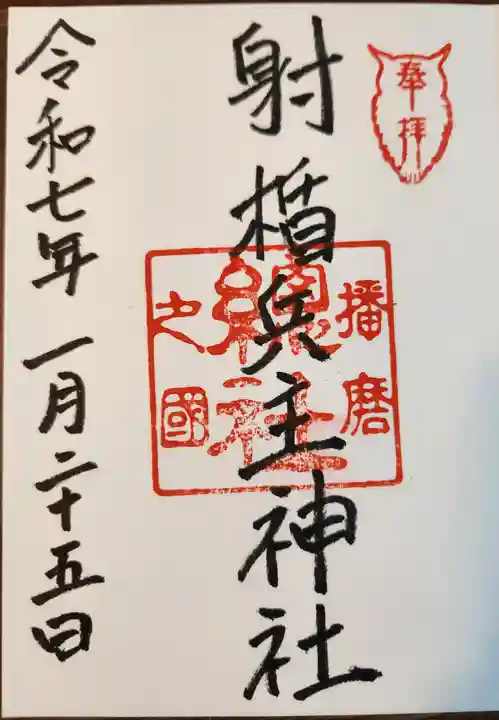 奉拝
射楯兵主神社
播磨
總社
之國
令和七年一月二十五日